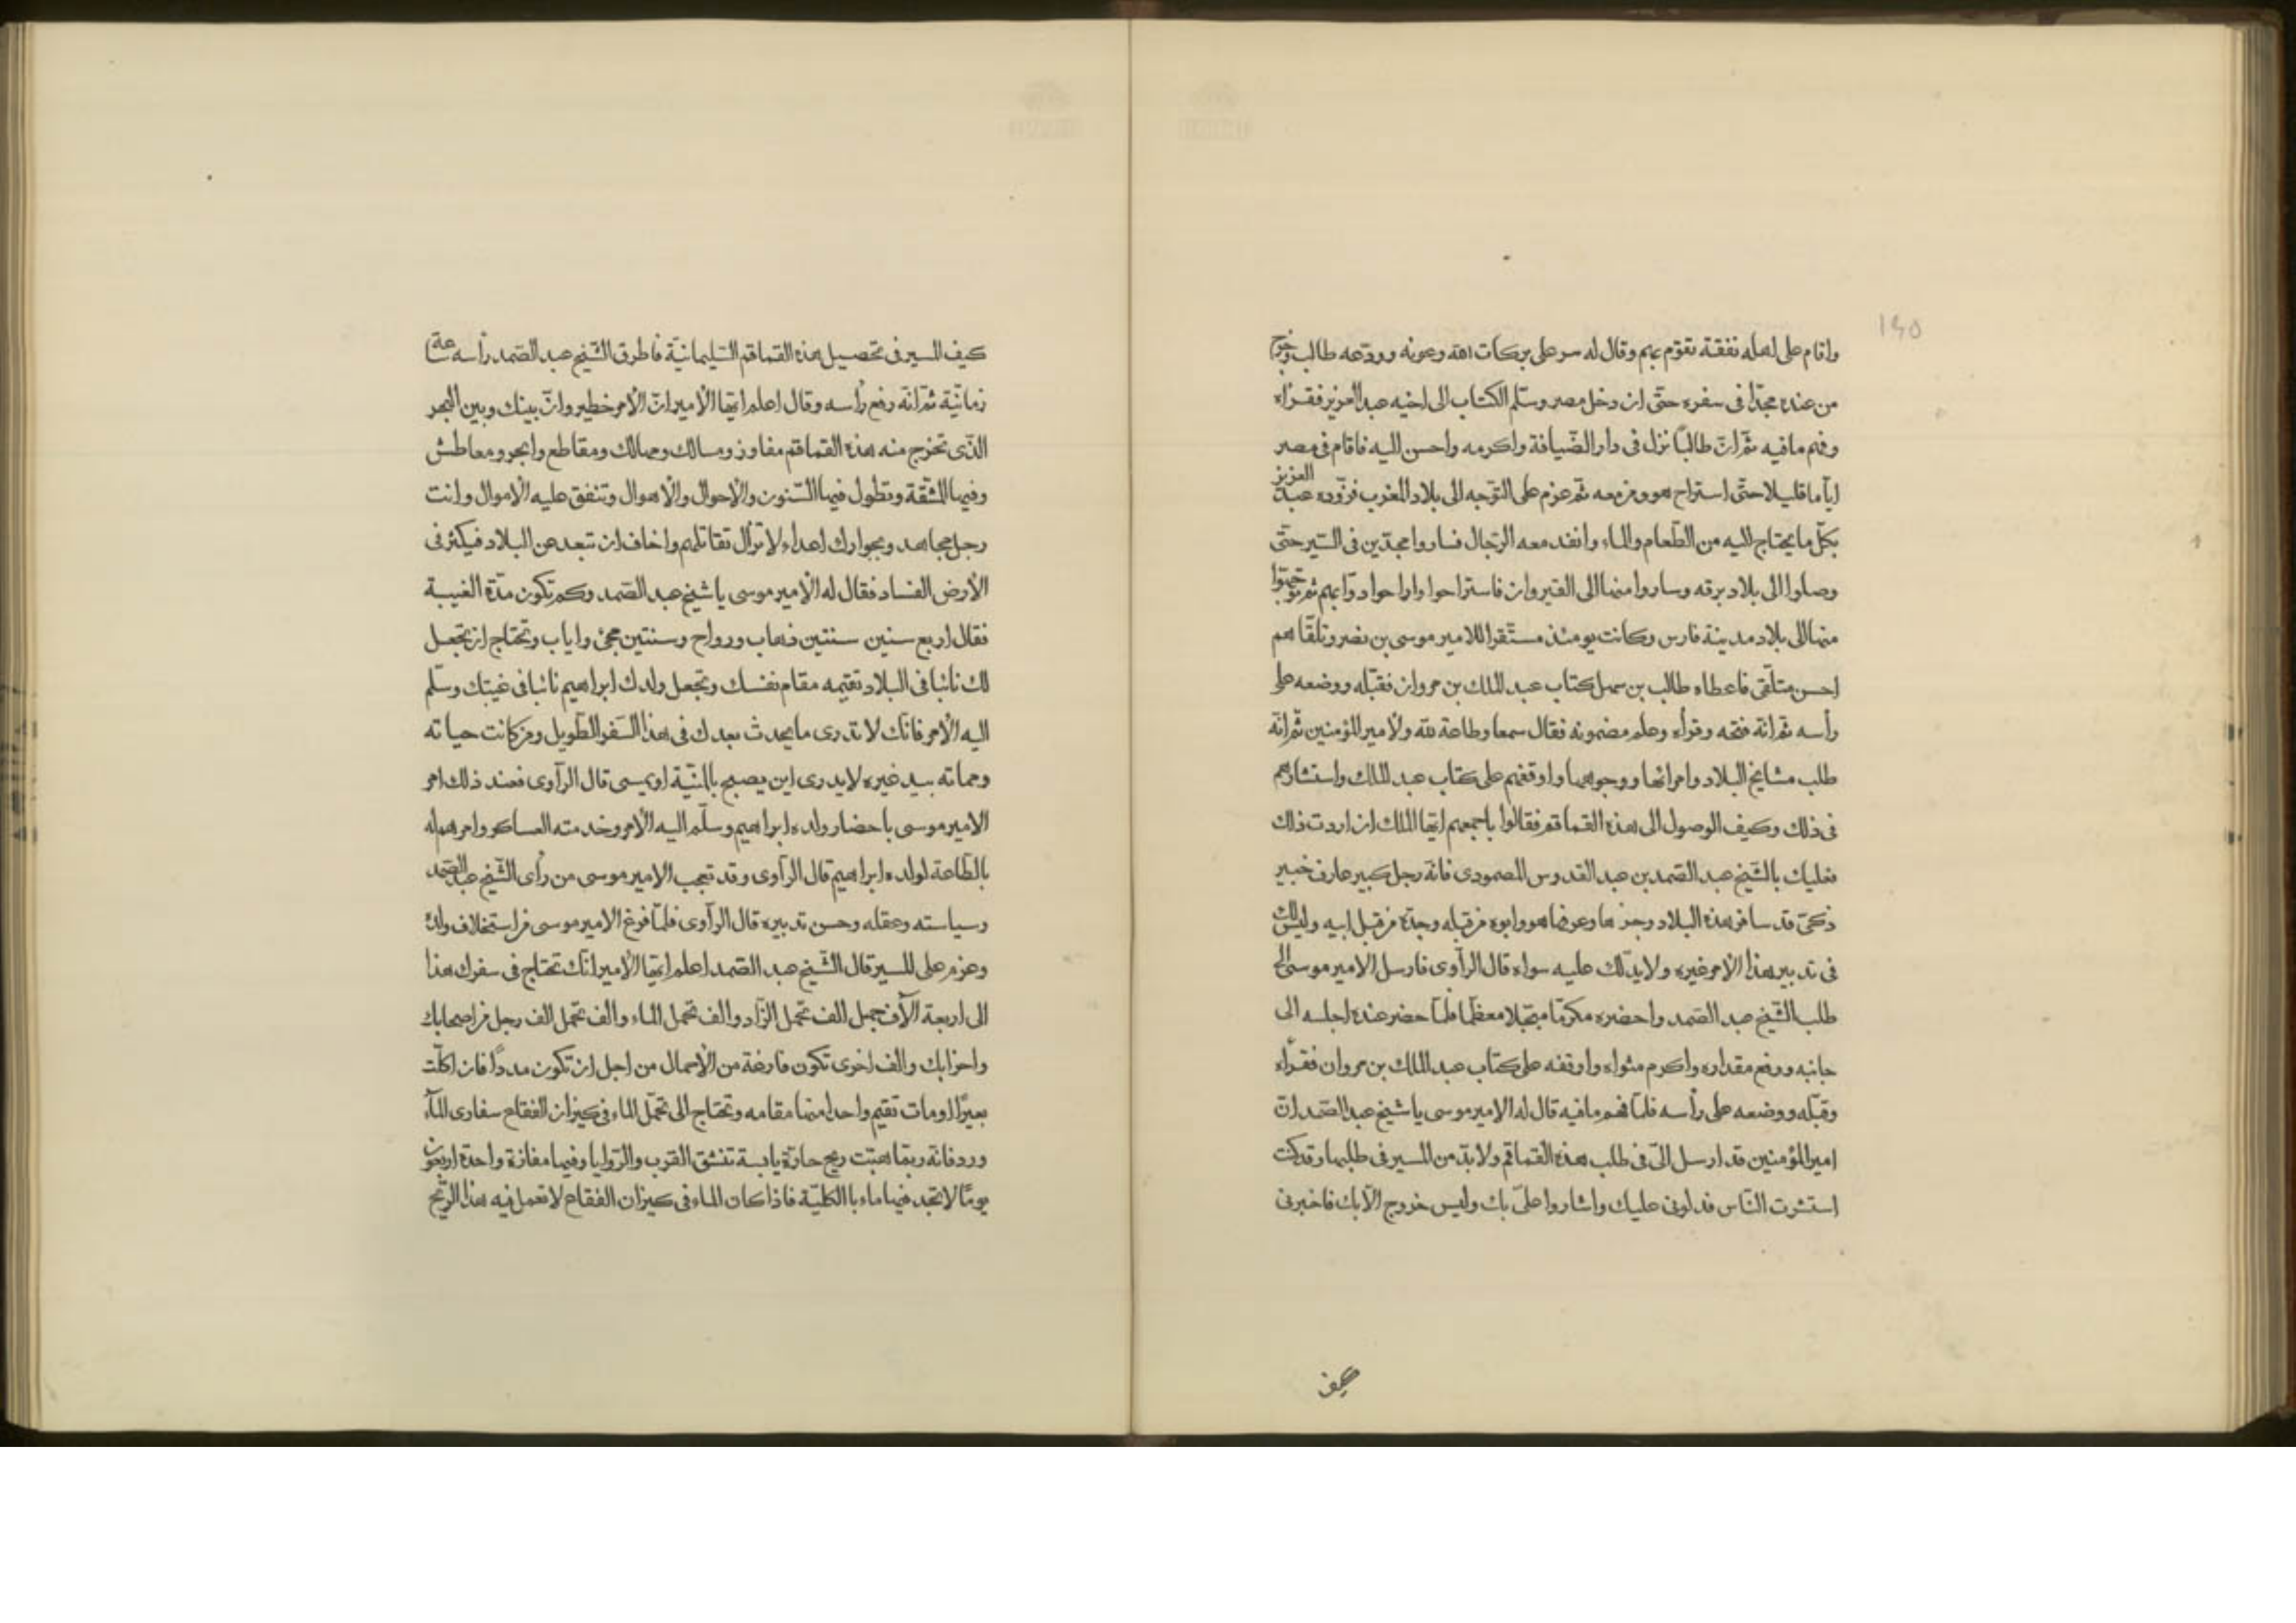 ١٤٥
واقام على اهله نفقة تقوم بهم وقال له سر على بركات الله وعونه وودّعه طالب وخرج
من عنده مجدّا فى سفره حتّى ان دخل مصر وسلّم الكتاب الى اخيه عبد العزيز فقرأه
وفهم مافيه ثمّ انّ طالبًا نزل فى دار الضّيافة واكرمه واحسن اليه فاقام فى مصر
ايّاما قليلا حتّى استراح هو ومن معه ثمّ عزم على التوّجه الى بلاد المغرب فزوّده عبد العزيز
بكلّ ما يحتاج اليه من الطّعام والماء وانفذ معه الرّجال فساروا مجدّين فى السّير حتّى
وصلوا الى بلاد برقه وساروا منها الى القيروان فاستراحوا واراحوا دوّابهم ثمّ توجّهوا
منها الى بلاد مدينة فارس وكانت يومئذ مستقرا للامير موسى بن نصر وتلقّاهم
احسن متلّقى فاعطاه طالب بن سهل كتاب عبد الملك بن مروان فقبّله ووضعه على
رأسه ثمّ انّه فتحه وقرأه وعلم مضمونه فقال سمعا وطاعة لله ولأمير المؤمنين ثمّ انّه
طلب مشايخ البلاد وامرائها ووجوهها واوقفهم على كتاب عبد الملك واستشارهم
فى ذلك وكيف الوصول الى هذه القماقم فقالوا باجمعهم ايّها الملك ان اردت ذلك
فعليك بالشّيخ عبد الصّمد بن عبد القدوس المصمودى فانّه رجل كبير عارف خبير
ذكىّ قد سافر هذه البلاد وجزها وعرفها هو وابوه من قبله وجدّه من قبل ابيه وليس لك
فى تدبير هذا الأمر غيره ولا يدلّك عليه سواه قال الرآوى فارسل الامير موسى الى
طلب الشّيخ عبد الصّمد واحضره مكرّما مبجّلا معظّما فلمّا حضر عنده اجلسه الى
جانبه ورفع مقداره واكرم مثواه واوقفه على كتاب عبد الملك بن مروان فقرأه
وقبّله ووضعه على رأسه فلمّا فهم مافيه قال له الامير موسى ياشيخ عبد الصّمد انّ
امير المؤمنين قد ارسل الىّ فى طلب هذه القماقم ولا بدّ من المسير فى طلبها وقد كنت
استشرت النّاس فدلونى عليك واشاروا علىّ بك وليس خروج الّا بك فاخبرنى
كيف
كيف السير فى تحصيل هذه القماقم السّليمانيّة فاطرق الشّيخ عبد الصّمد رأسه ساعة
زمانيّة ثمّ انّه رفع رأسه وقال اعلم ايّها الأمير انّ الأمر خطير وانّ بينك وبين البحر
الّذى تخرج منه هذه القماقم مفاوز ومسالك ومهالك ومقاطع وابحر ومعاطش
وفيها المشّقة وتطول فيها السّنون والأحوال والأهوال وتنفق عليه الأموال وانت
رجل مجاهد وبجوارك اعداء لا تزال تقاتلهم واخاف ان تبعد عن البلاد فيكثر فى
الأرض الفساد فقال له الأمير موسى ياشيخ عبد الصّمد وكم تكون مدّة الغيبة
فقال اربع سنين سنتين ذهاب ورواح وسنتين مجئ واياب وتحتاج ان تجعل
لك نائبا فى البلاد تقيمه مقام نفسك وتجعل ولدك ابراهيم نائبا فى غيبتك وسلّم
اليه الأمر فانّك لا تدرى ما يحدث بعدك فى هذا السّفر الطّويل ومن كانت حياته
ومماته بيد غيره لا يدرى اين يصبح بالمنّية او يمسى قال الرآوى فعند ذلك امر
الامير موسى باحضار ولده ابراهيم وسلّم اليه الأمر وخدمته العساكر وامرهم له
بالطّاعة لولده ابراهيم قال الرآوى وقد تعجب الامير موسى من رأى الشّيخ عبد الصّمد
وسياسته وعقله وحسن تدبيره قال الرآوى فلمّا فرغ الامير موسى من استخلاف ولده
وعزم على المسير قال الشّيخ عبد الصّمد اعلم ايّها الأمير انّك تحتاج فى سفرك هذا
الى اربعة آلآف جمل الف تحمل الزّاد والف تحمل الماء والف تحمل الف رجل من اصحابك
واحزابك والف اخرى تكون فارغة من الأحمال من اجل ان تكون مددًا فان اكلّت
بعيرًا او مات تقيم واحدا منها مقامه وتحتاج الى تحمّل الماء فى كيزان الفقاع سفارى المآء
وردفانّه ربّما هبّت ريح حارّة يابسة تنشق القرب والرّوايا وفيها مفازة واحدة اربعون
يومًا لا تجد فيها ماء بالكليّة فاذا كان الماء فى كيزان الفقاع لا تعمل فيه هذا الرّيح